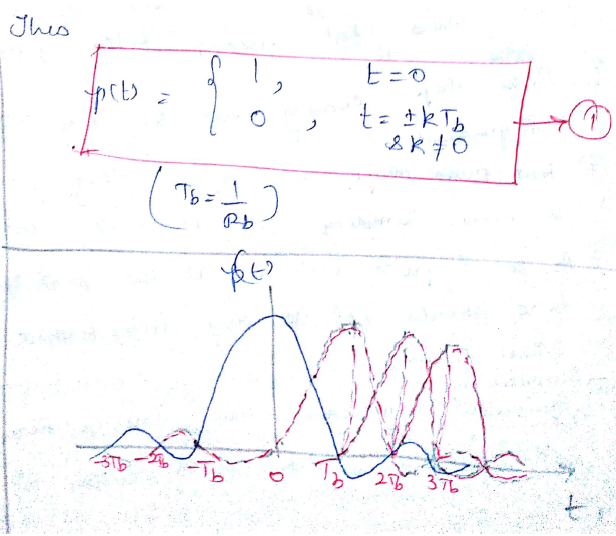 Thus
p(t) = { 1, t = 0
0, t = ±kTb
& k ≠ 0
→ 1
(Tb = 1/Rb)
p(t)
-3Tb -2Tb -Tb 0 Tb 2Tb 3Tb
t